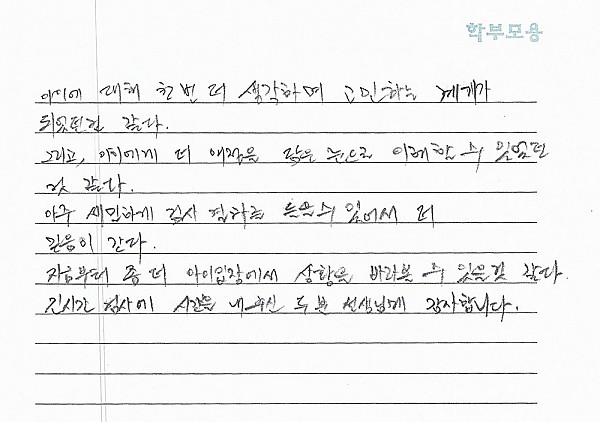 학부모용
아이에 대해 한번 더 생각하며 고민하는 계기가
되었던것 같다.
그리고, 아이에게 더 애정을 담은 눈으로 이해할 수 있었던
것 같다.
아주 세밀하게 검사 결과를 들을수 있어서 더
믿음이 간다.
지금부터 좀 더 아이입장에서 상황을 바라볼 수 있을것 같다.
긴시간 검사에 시간을 내주신 두 분 선생님께 감사합니다.